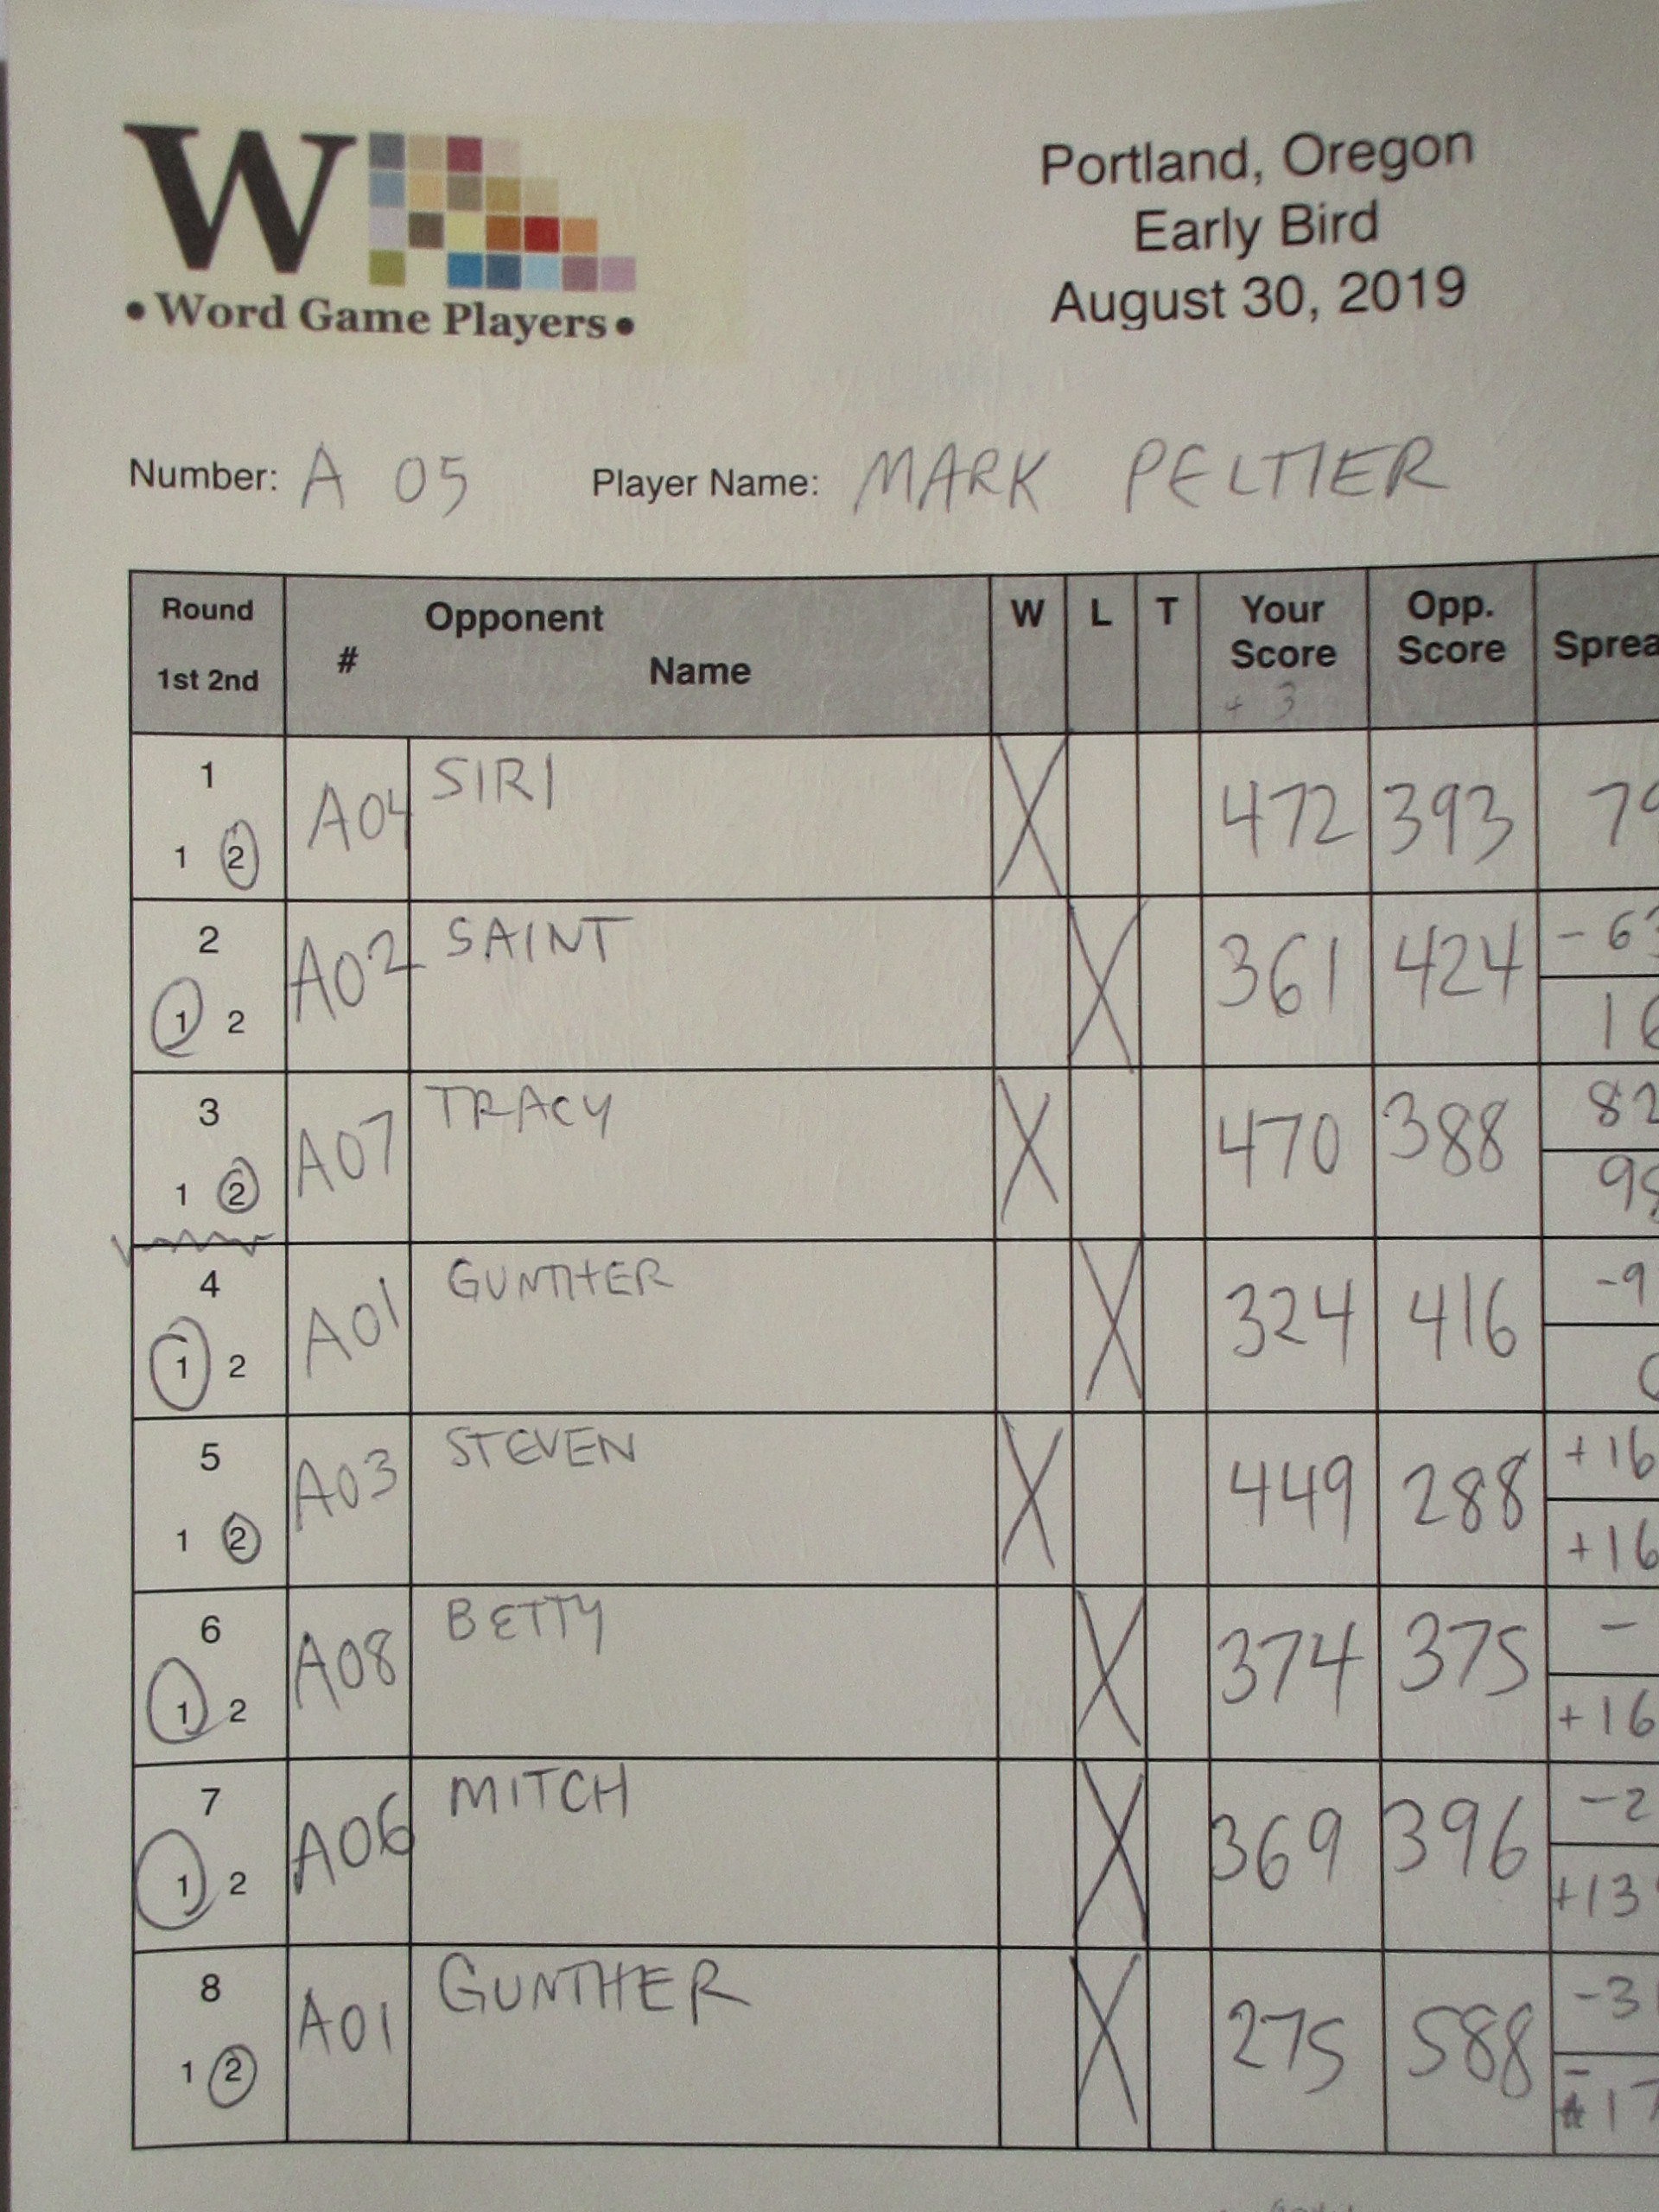 W
• Word Game Players •
Portland, Oregon
Early Bird
August 30, 2019
Number: A 05 Player Name: MARK PELTIER
Round 1st 2nd # Opponent Name W L T Your Score + 3 Opp. Score Sprea
1 1 2 A04 SIRI X 472 393 79
2 1 2 A02 SAINT X 361 424 -63
16
3 1 2 A07 TRACY X 470 388 82
98
4 1 2 A01 GUNTHER X 324 416 -9
5 1 2 A03 STEVEN X 449 288 +16
+16
6 1 2 A08 BETTY X 374 375 -
+16
7 1 2 A06 MITCH X 369 396 -2
+13
8 1 2 A01 GUNTHER X 275 588 -3
-17